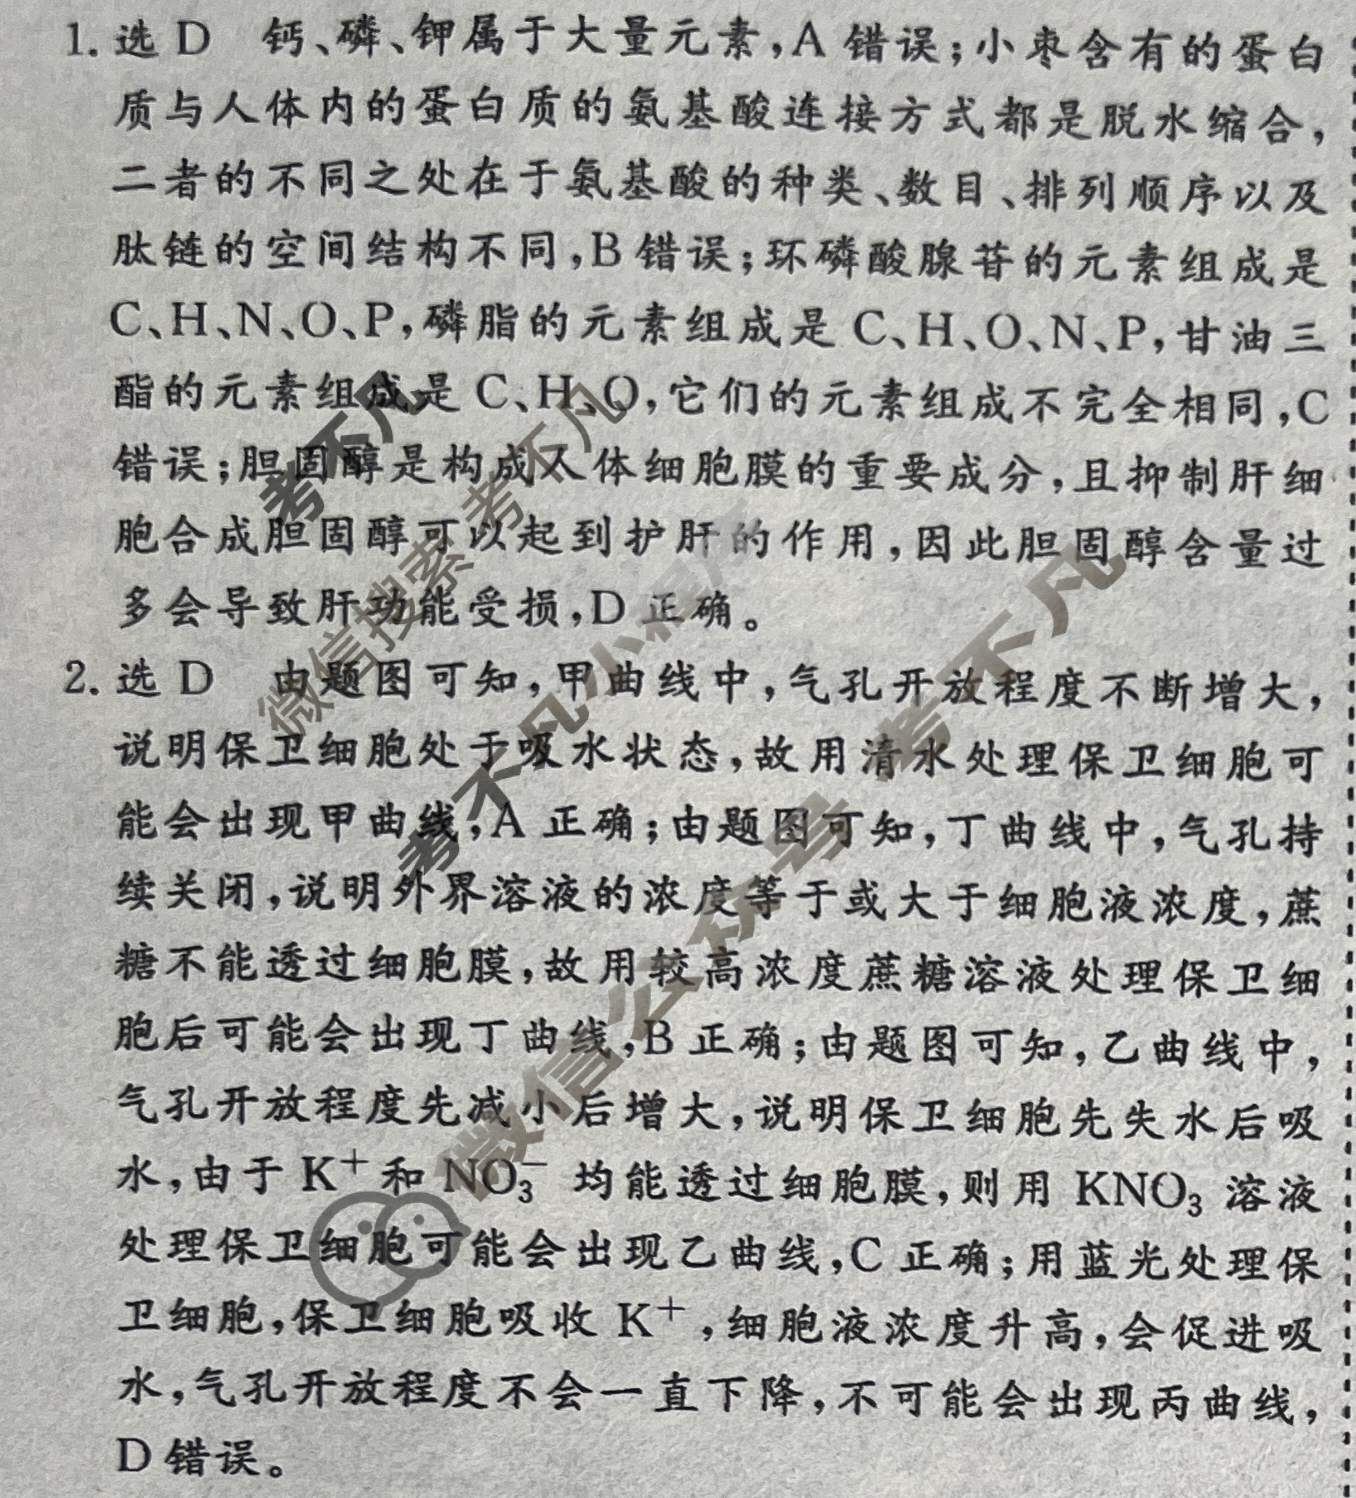 1. 选 D 钙、磷、钾属于大量元素,A 错误;小枣含有的蛋白
质与人体内的蛋白质的氨基酸连接方式都是脱水缩合,
二者的不同之处在于氨基酸的种类、数目、排列顺序以及
肽链的空间结构不同,B 错误;环磷酸腺苷的元素组成是
C、H、N、O、P,磷脂的元素组成是 C、H、O、N、P,甘油三
酯的元素组成是 C、H、O,它们的元素组成不完全相同,C
错误;胆固醇是构成人体细胞膜的重要成分,且抑制肝细
胞合成胆固醇可以起到护肝的作用,因此胆固醇含量过
多会导致肝功能受损,D 正确。
2. 选 D 由题图可知,甲曲线中,气孔开放程度不断增大,
说明保卫细胞处于吸水状态,故用清水处理保卫细胞可
能会出现甲曲线,A 正确;由题图可知,丁曲线中,气孔持
续关闭,说明外界溶液的浓度等于或大于细胞液浓度,蔗
糖不能透过细胞膜,故用较高浓度蔗糖溶液处理保卫细
胞后可能会出现丁曲线,B 正确;由题图可知,乙曲线中,
气孔开放程度先减小后增大,说明保卫细胞先失水后吸
水,由于 K⁺ 和 NO₃⁻ 均能透过细胞膜,则用 KNO₃ 溶液
处理保卫细胞可能会出现乙曲线,C 正确;用蓝光处理保
卫细胞,保卫细胞吸收 K⁺,细胞液浓度升高,会促进吸
水,气孔开放程度不会一直下降,不可能会出现丙曲线,
D 错误。
考不凡
微信搜索 考不凡
考不凡小程序
微信公众号 考不凡